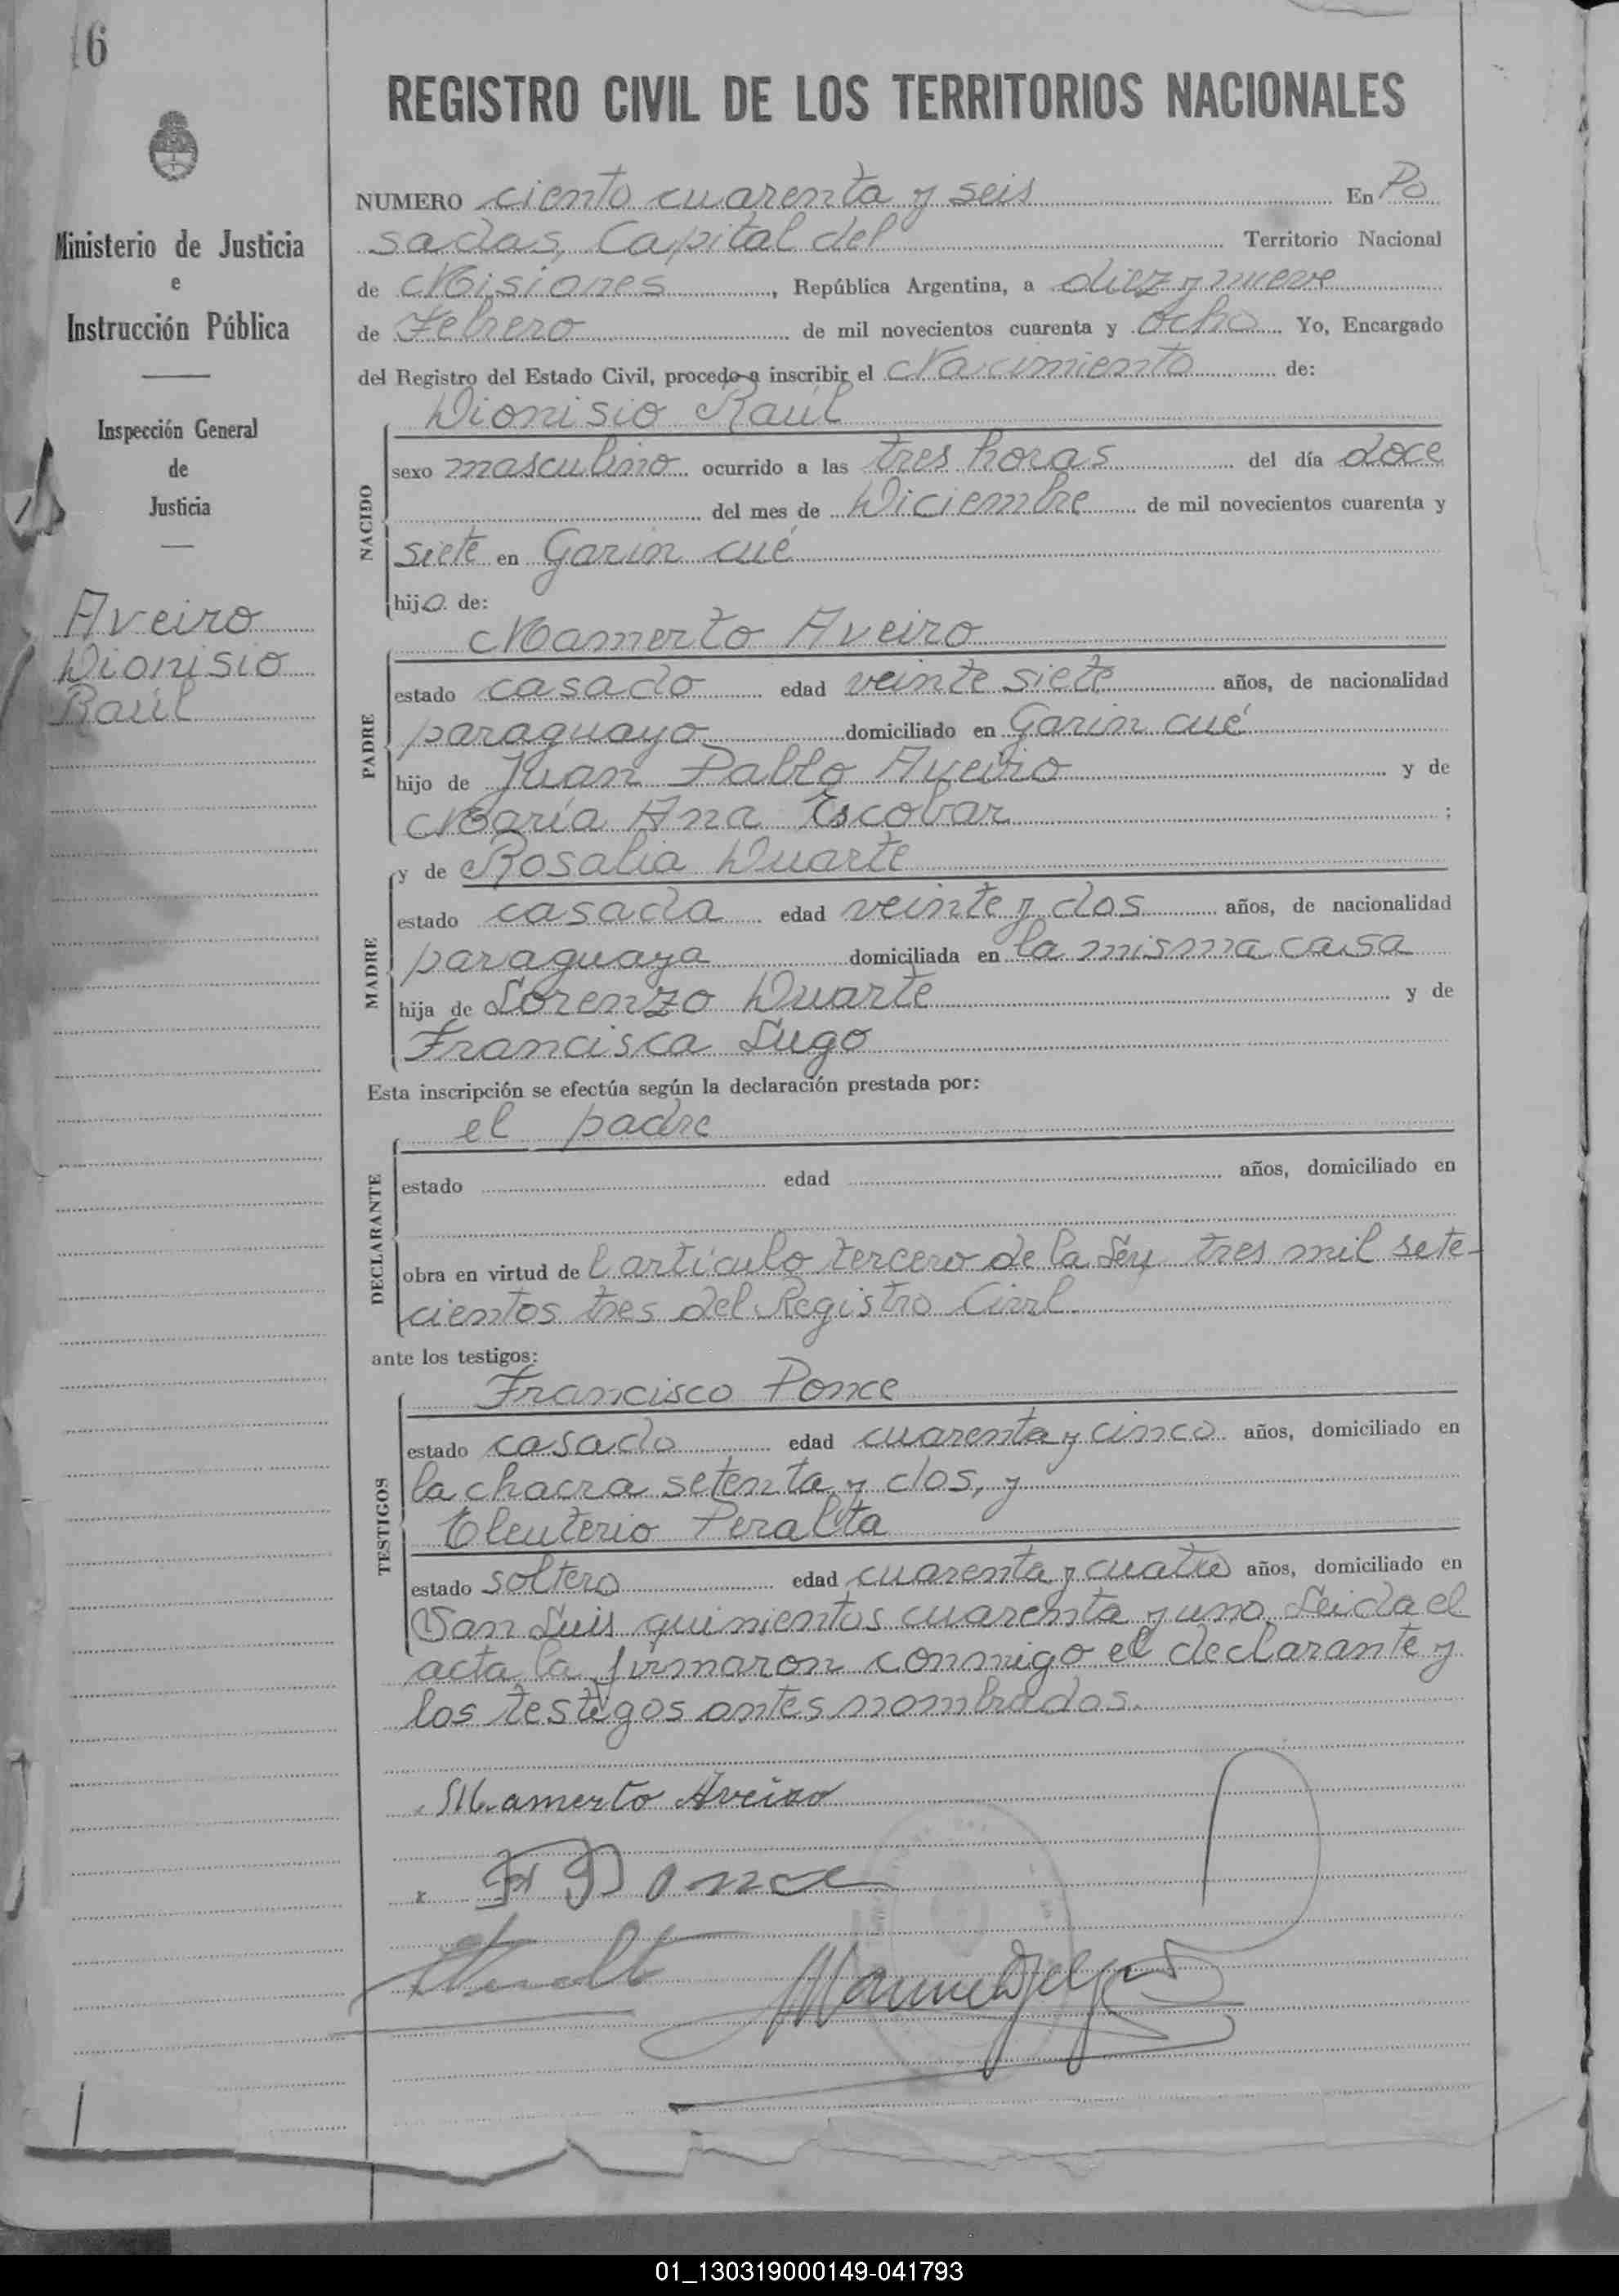 16
REGISTRO CIVIL DE LOS TERRITORIOS NACIONALES
Ministerio de Justicia
e
Instrucción Pública
Inspección General
de
Justicia
Aveiro
Dionisio
Raúl
NUMERO ciento cuarenta y seis En Po
sadas, Capital del Territorio Nacional
de Misiones, República Argentina, a diez y nueve
de Febrero de mil novecientos cuarenta y ocho Yo, Encargado
del Registro del Estado Civil, procedo a inscribir el Nacimiento de:
Dionisio Raúl
NACIDO
sexo masculino ocurrido a las tres horas del día doce
del mes de Diciembre de mil novecientos cuarenta y
siete en Garin cué
hijo de:
Mamerto Aveiro
PADRE
estado casado edad veinte siete años, de nacionalidad
paraguayo domiciliado en Garin cué
hijo de Juan Pablo Aveiro y de
María Ana Escobar ;
y de Rosalia Duarte
MADRE
estado casada edad veinte y dos años, de nacionalidad
paraguaya domiciliada en la misma casa
hija de Lorenzo Duarte y de
Francisca Lugo
Esta inscripción se efectúa según la declaración prestada por:
el padre
DECLARANTE
estado edad años, domiciliado en
obra en virtud del artículo tercero de la Ley tres mil sete-
cientos tres del Registro Civil
ante los testigos:
Francisco Ponce
TESTIGOS
estado casado edad cuarenta y cinco años, domiciliado en
la chacra setenta y dos, y
Eleuterio Peralta
estado soltero edad cuarenta y cuatro años, domiciliado en
San Luis quinientos cuarenta y uno. Leida el
acta la firmaron conmigo el declarante y
los testigos antes nombrados.
Mamerto Aveiro
F Ponce
01_130319000149-041793